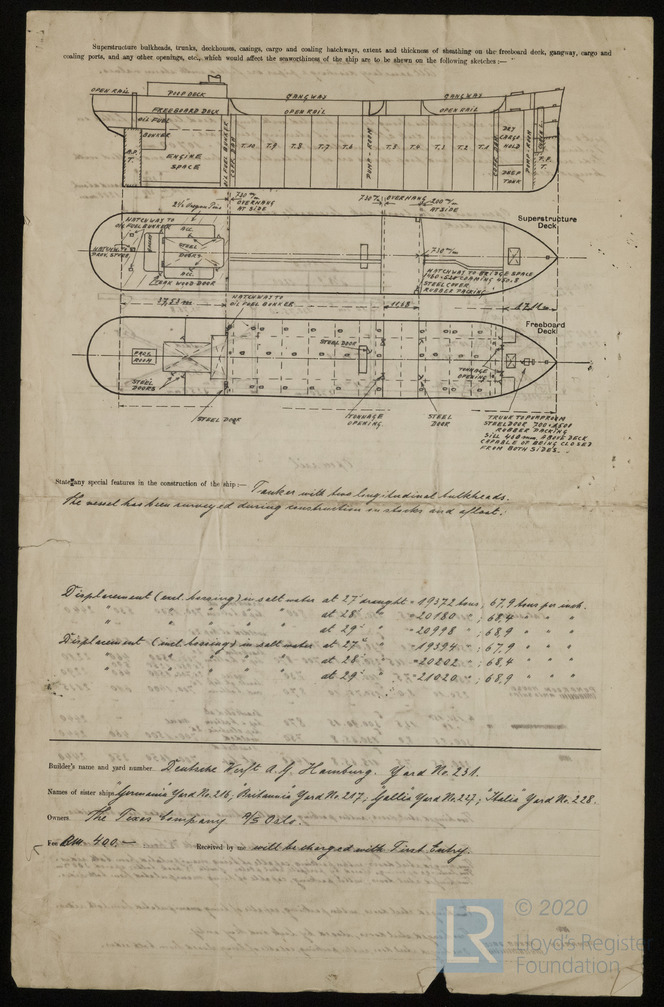 Superstructure bulkheads, trunks, deckhouses, casings, cargo and coaling hatchways, extent and thickness of sheathing on the freeboard deck, gangway, cargo and
coaling ports, and any other openings, etc., which would affect the seaworthiness of the ship are to be shewn on the following sketches:—
OPEN RAIL POOP DECK GANGWAY GANGWAY OPEN RAIL
FREEBOARD DECK OPEN RAIL OPEN RAIL
OIL FUEL
BUNKER
ENGINE
SPACE
OIL FUEL BUNKER
T.10 T.9 T.8 T.7 T.6 PUMP-ROOM T.3 T.2 T.1
DRY
CARGO
HOLD
DEEP
TANK
PUMP ROOM
730 m/m
OVERHANG
AT SIDE
730 m/m OVERHANG 200 m/m
AT SIDE
2½ Oregon Pine
HATCHWAY TO
OIL FUEL BUNKER
ACC.
STEEL
DOORS
ACC.
HATCH TO
PROV. STORE
TEAK WOOD DOOR
Superstructure
Deck
730 m/m
HATCHWAY TO BRIDGE SPACE
COAMING 450.8
STEEL COVER
RUBBER PACKING
37,53 m
HATCHWAY TO
OIL FUEL BUNKER
11,68
Freeboard
Deck
STEEL DOOR
ROOM
TONNAGE
OPENING
STEEL
DOORS
STEEL DOOR
TONNAGE
OPENING
STEEL
DOOR
TRUNK TO PUMPROOM
STEEL DOOR
RUBBER PACKING
SILL 460 mm. ABOVE DECK
CAPABLE OF BEING CLOSED
FROM BOTH SIDES.
State any special features in the construction of the ship:— Tanker with two longitudinal bulkheads.
The vessel has been surveyed during construction in stocks and afloat.
Displacement (excl. bossing) in salt water at 27' draught = 19372 tons; 67,9 tons per inch.
" " " at 28' " = 20180 " ; 68,4 " " "
" " " at 29' " = 20998 " ; 68,9 " " "
Displacement (incl. bossing) in salt water at 27' " = 19394 " ; 67,9 " " "
" " " at 28' " = 20202 " ; 68,4 " " "
" " " at 29' " = 21020 " ; 68,9 " " "
Builder's name and yard number Deutsche Werft A.G. Hamburg. Yard No. 231.
Names of sister ships "Germania" Yard No. 216; "Britannia" Yard No. 217; "Gallia" Yard No. 227; "Italia" Yard No. 228.
Owners The Texas Company A/S Oslo.
Fee RM. 400.— Received by me will be charged with First Entry.
LR
© 2020
Lloyd's Register
Foundation